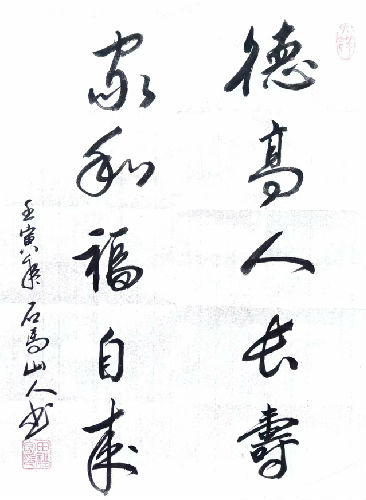 德高人长寿
家和福自来
壬寅年 石马山人书